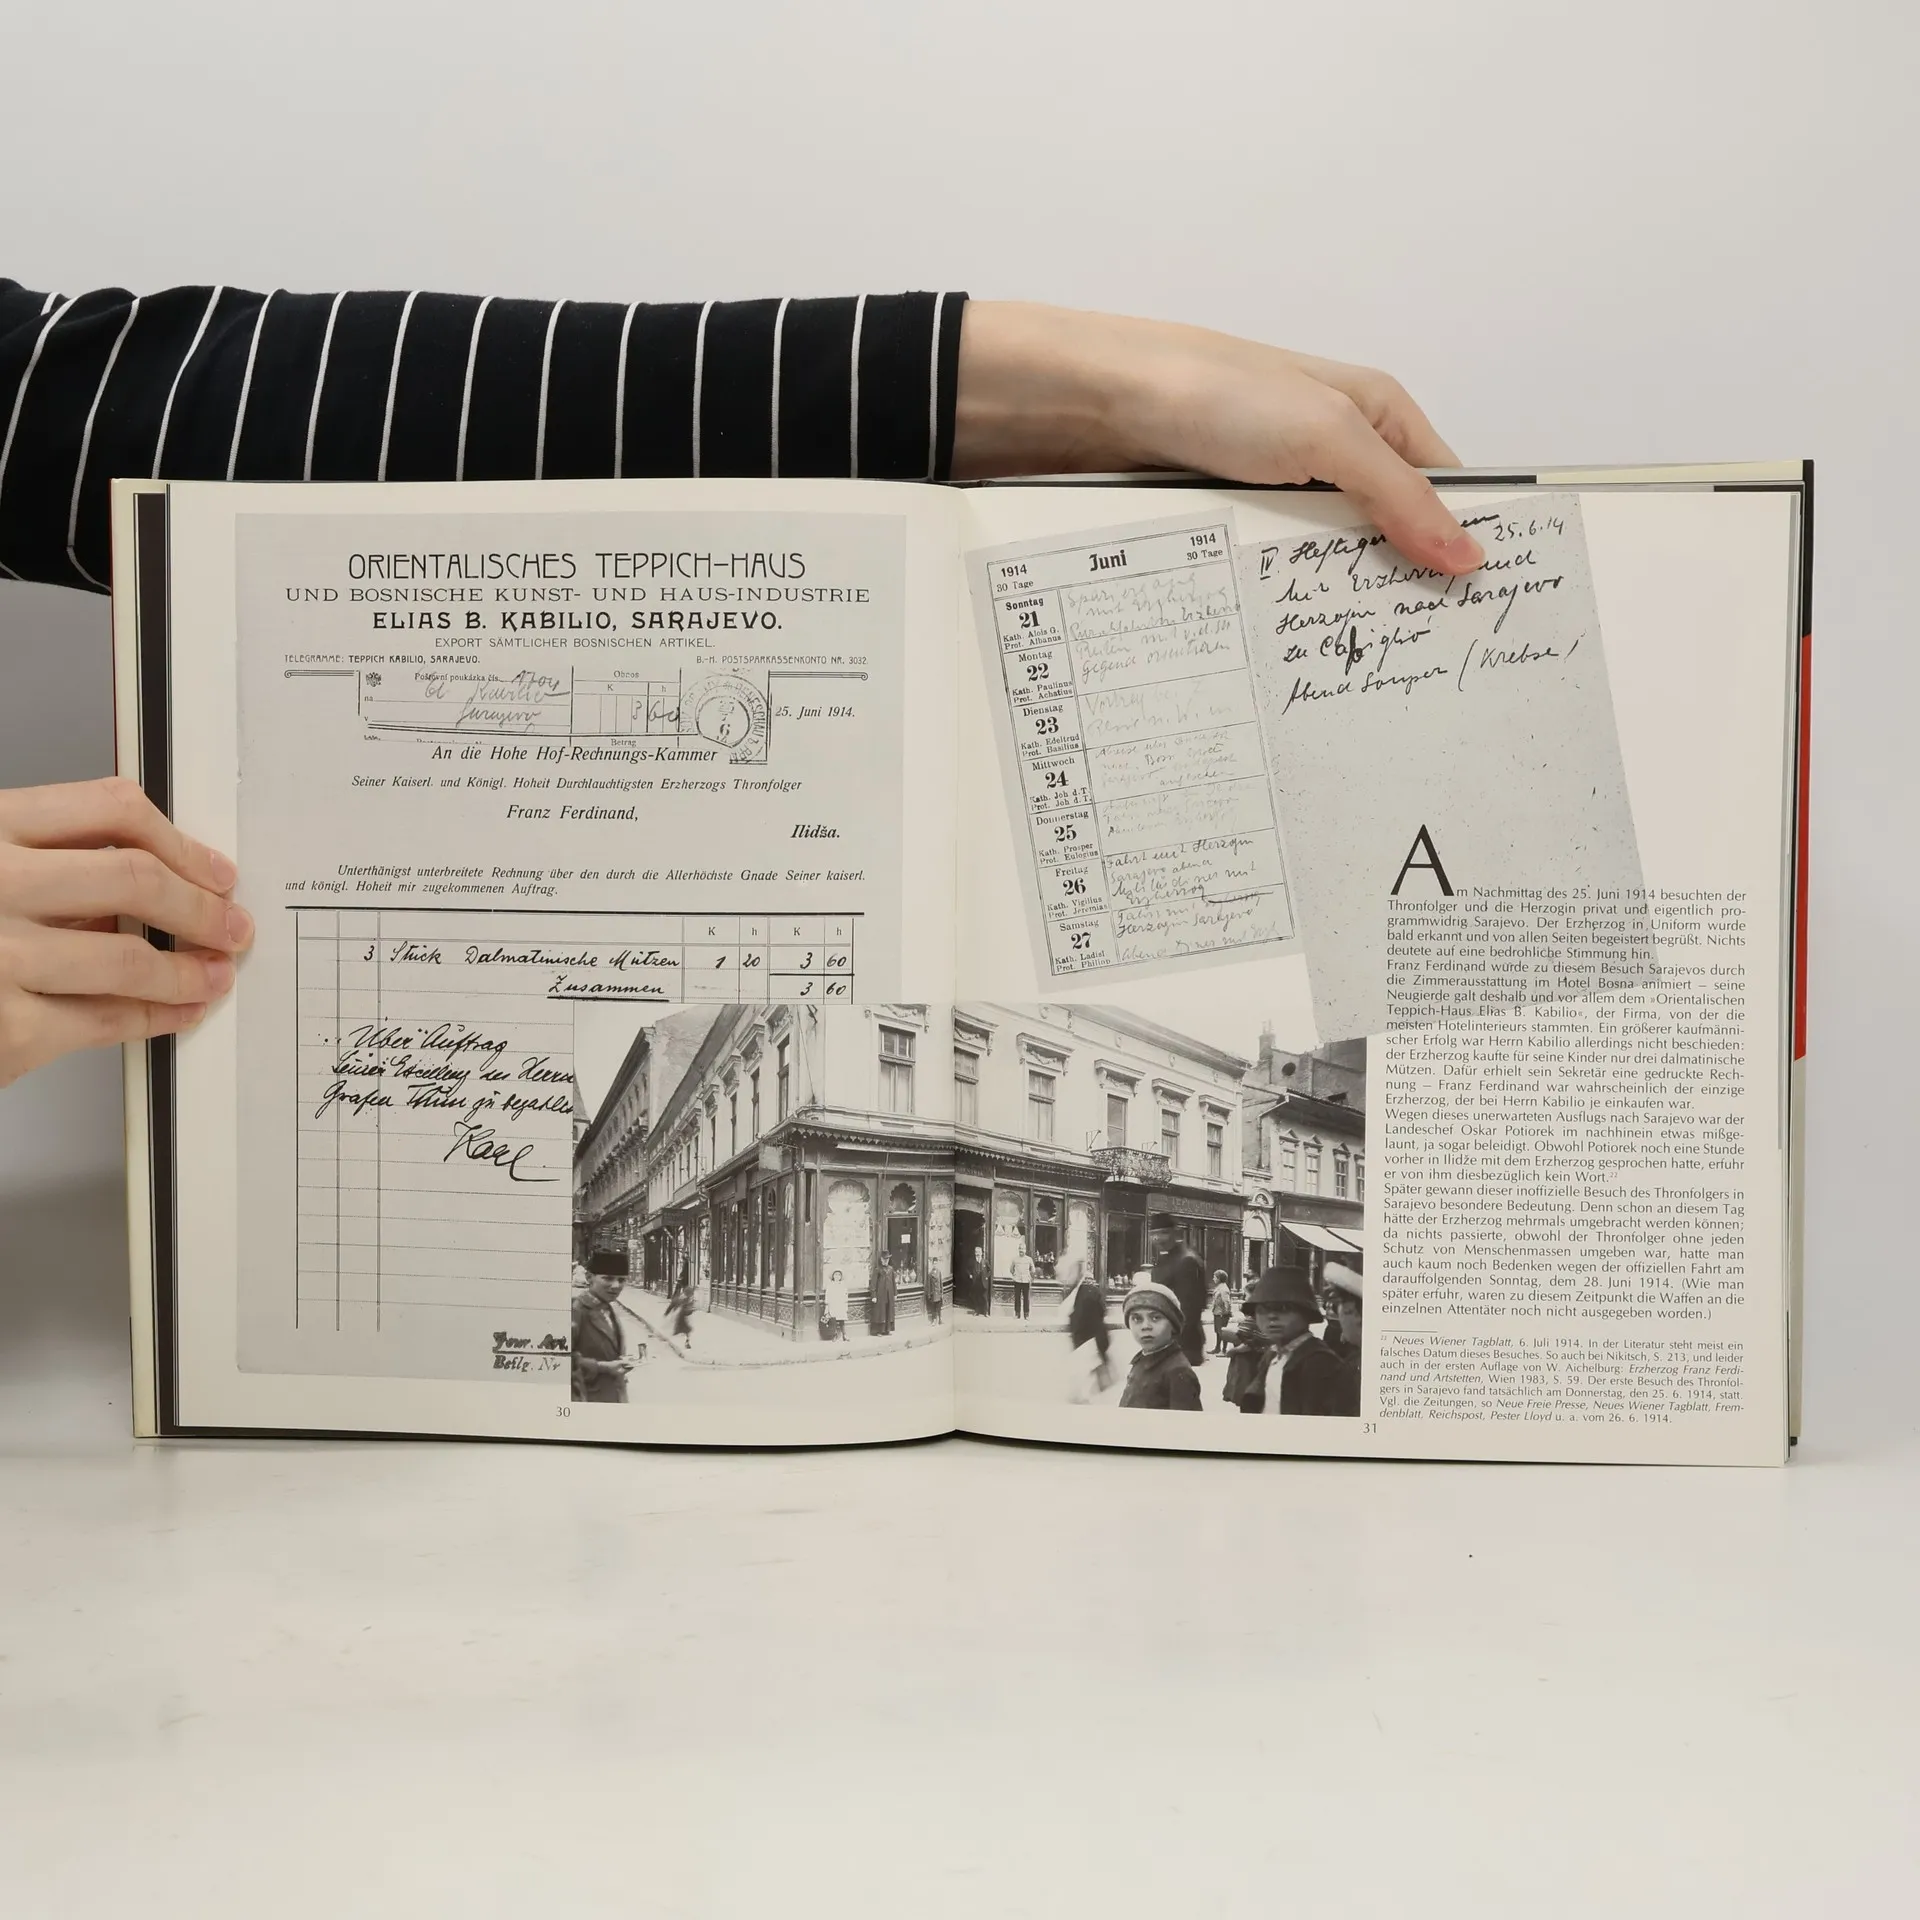 ORIENTALISCHES TEPPICH-HAUS
UND BOSNISCHE KUNST- UND HAUS-INDUSTRIE
ELIAS B. KABILIO, SARAJEVO.
EXPORT SÄMTLICHER BOSNISCHEN ARTIKEL.
TELEGRAMME: TEPPICH KABILIO, SARAJEVO.
B.-H. POSTSPARKASSENKONTO NR. 3032.
Poštovní poukázka čís.
Obnos
na Kabilio
K h
v Sarajevo
3 60
Betrag
25. Juni 1914.
An die Hohe Hof-Rechnungs-Kammer
Seiner Kaiserl. und Königl. Hoheit Durchlauchtigsten Erzherzogs Thronfolger
Franz Ferdinand,
Ilidša.
Unterthänigst unterbreitete Rechnung über den durch die Allerhöchste Gnade Seiner kaiserl.
und königl. Hoheit mir zugekommenen Auftrag.
K h K h
3 Stück Dalmatinische Mützen 1 20 3 60
Zusammen 3 60
Über Auftrag
Seiner des Herrn
Grafen Thun zu bezahlen
Beflg. Nr
30
1914 Juni 1914
30 Tage 30 Tage
Sonntag
21
Kath. Alois G.
Prot. Albanus
Montag
22
Kath. Paulinus
Prot. Achatius
Dienstag
23
Kath. Edeltrud
Prot. Basilius
Mittwoch
24
Kath. Joh d. T.
Prot. Joh d. T.
Donnerstag
25
Kath. Prosper
Prot. Eulogius
Freitag
26
Kath. Vigilius
Prot. Jeremias
Samstag
27
Kath. Ladisl.
Prot. Philipp
Spaziergang
mit Erzherzog
Reiten
Gegend
Fahrt mit Herzogin
Sarajevo abend
Erzherzog
Fahrt mit
Herzogin Sarajevo
IV. 25.6.14
Mit und
Herzogin nach Sarajevo
zu
Abend Souper (Krebse)
Am Nachmittag des 25. Juni 1914 besuchten der
Thronfolger und die Herzogin privat und eigentlich pro-
grammwidrig Sarajevo. Der Erzherzog in Uniform wurde
bald erkannt und von allen Seiten begeistert begrüßt. Nichts
deutete auf eine bedrohliche Stimmung hin.
Franz Ferdinand wurde zu diesem Besuch Sarajevos durch
die Zimmerausstattung im Hotel Bosna animiert – seine
Neugierde galt deshalb und vor allem dem »Orientalischen
Teppich-Haus Elias B. Kabilio«, der Firma, von der die
meisten Hotelinterieurs stammten. Ein größerer kaufmänni-
scher Erfolg war Herrn Kabilio allerdings nicht beschieden:
der Erzherzog kaufte für seine Kinder nur drei dalmatinische
Mützen. Dafür erhielt sein Sekretär eine gedruckte Rech-
nung – Franz Ferdinand war wahrscheinlich der einzige
Erzherzog, der bei Herrn Kabilio je einkaufen war.
Wegen dieses unerwarteten Ausflugs nach Sarajevo war der
Landeschef Oskar Potiorek im nachhinein etwas mißge-
launt, ja sogar beleidigt. Obwohl Potiorek noch eine Stunde
vorher in Ilidže mit dem Erzherzog gesprochen hatte, erfuhr
er von ihm diesbezüglich kein Wort.²²
Später gewann dieser inoffizielle Besuch des Thronfolgers in
Sarajevo besondere Bedeutung. Denn schon an diesem Tag
hätte der Erzherzog mehrmals umgebracht werden können;
da nichts passierte, obwohl der Thronfolger ohne jeden
Schutz von Menschenmassen umgeben war, hatte man
auch kaum noch Bedenken wegen der offiziellen Fahrt am
darauffolgenden Sonntag, dem 28. Juni 1914. (Wie man
später erfuhr, waren zu diesem Zeitpunkt die Waffen an die
einzelnen Attentäter noch nicht ausgegeben worden.)
²² Neues Wiener Tagblatt, 6. Juli 1914. In der Literatur steht meist ein
falsches Datum dieses Besuches. So auch bei Nikitsch, S. 213, und leider
auch in der ersten Auflage von W. Aichelburg: Erzherzog Franz Ferdi-
nand und Artstetten, Wien 1983, S. 59. Der erste Besuch des Thronfol-
gers in Sarajevo fand tatsächlich am Donnerstag, den 25. 6. 1914, statt.
Vgl. die Zeitungen, so Neue Freie Presse, Neues Wiener Tagblatt, Frem-
denblatt, Reichspost, Pester Lloyd u. a. vom 26. 6. 1914.
31